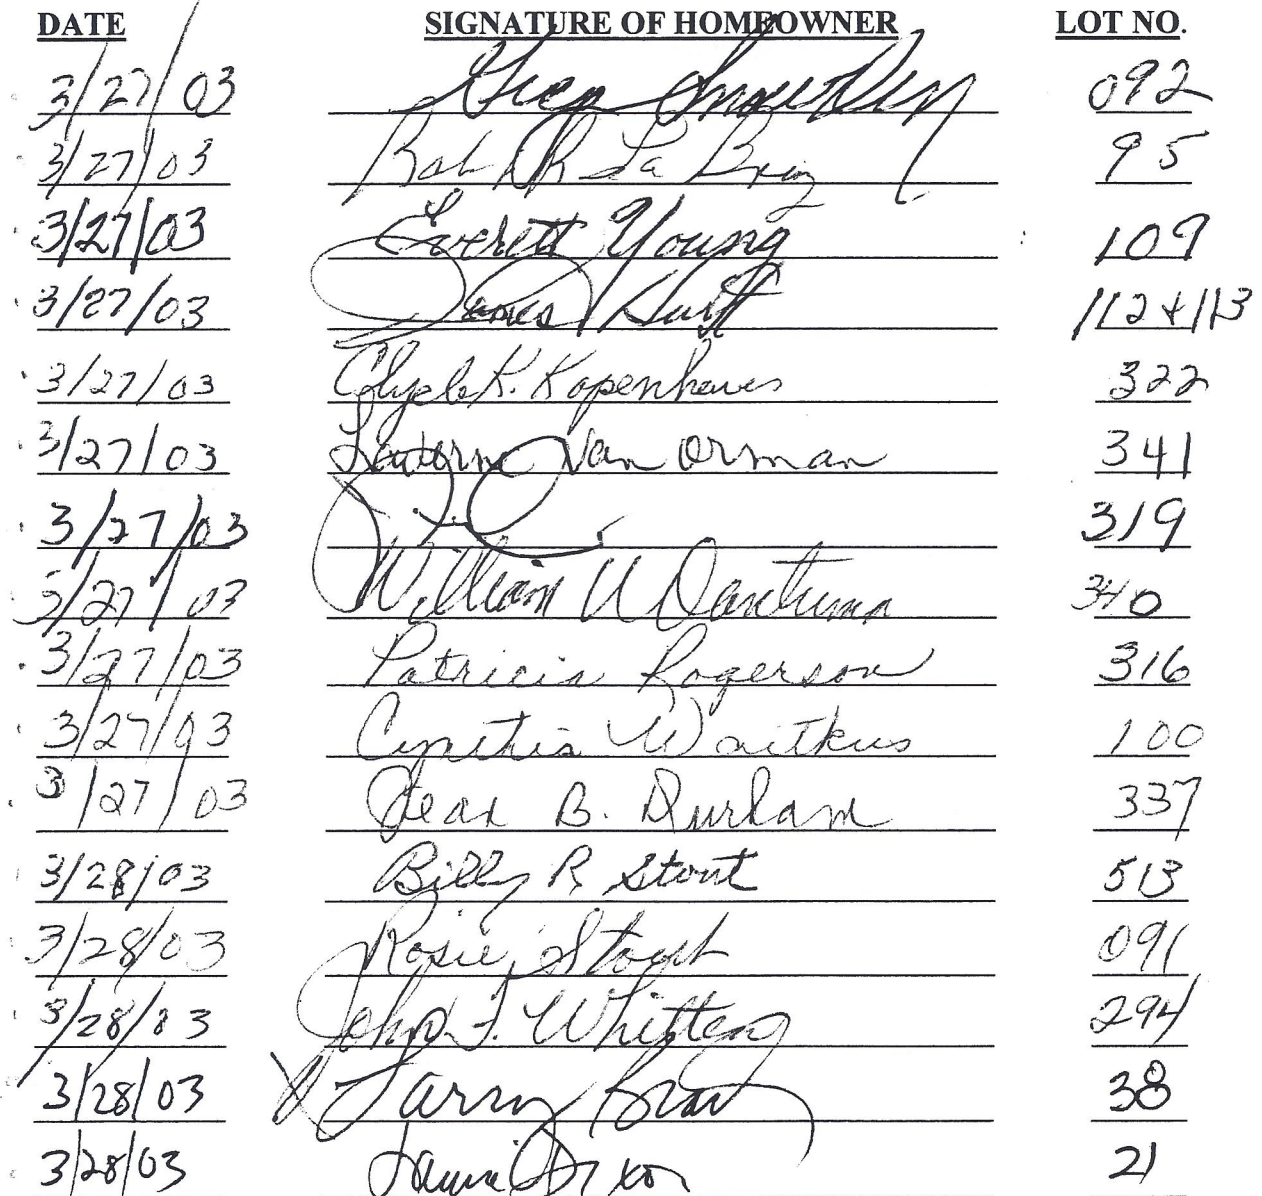 DATE SIGNATURE OF HOMEOWNER LOT NO.
3/27/03 092
3/27/03 95
3/27/03 Everett Young 109
3/27/03 James 112 + 113
3/27/03 Clyde K. Kopenhaver 322
3/27/03 Van Orman 341
3/27/03 319
3/27/03 William 340
3/27/03 Patricia Rogerson 316
3/27/03 Cynthia Waitkus 100
3/27/03 Jean B. Durham 337
3/28/03 Billy R Stout 513
3/28/03 Rosie Stout 091
3/28/03 John F. Whitten 294
3/28/03 Larry 38
3/28/03 Dixon 21